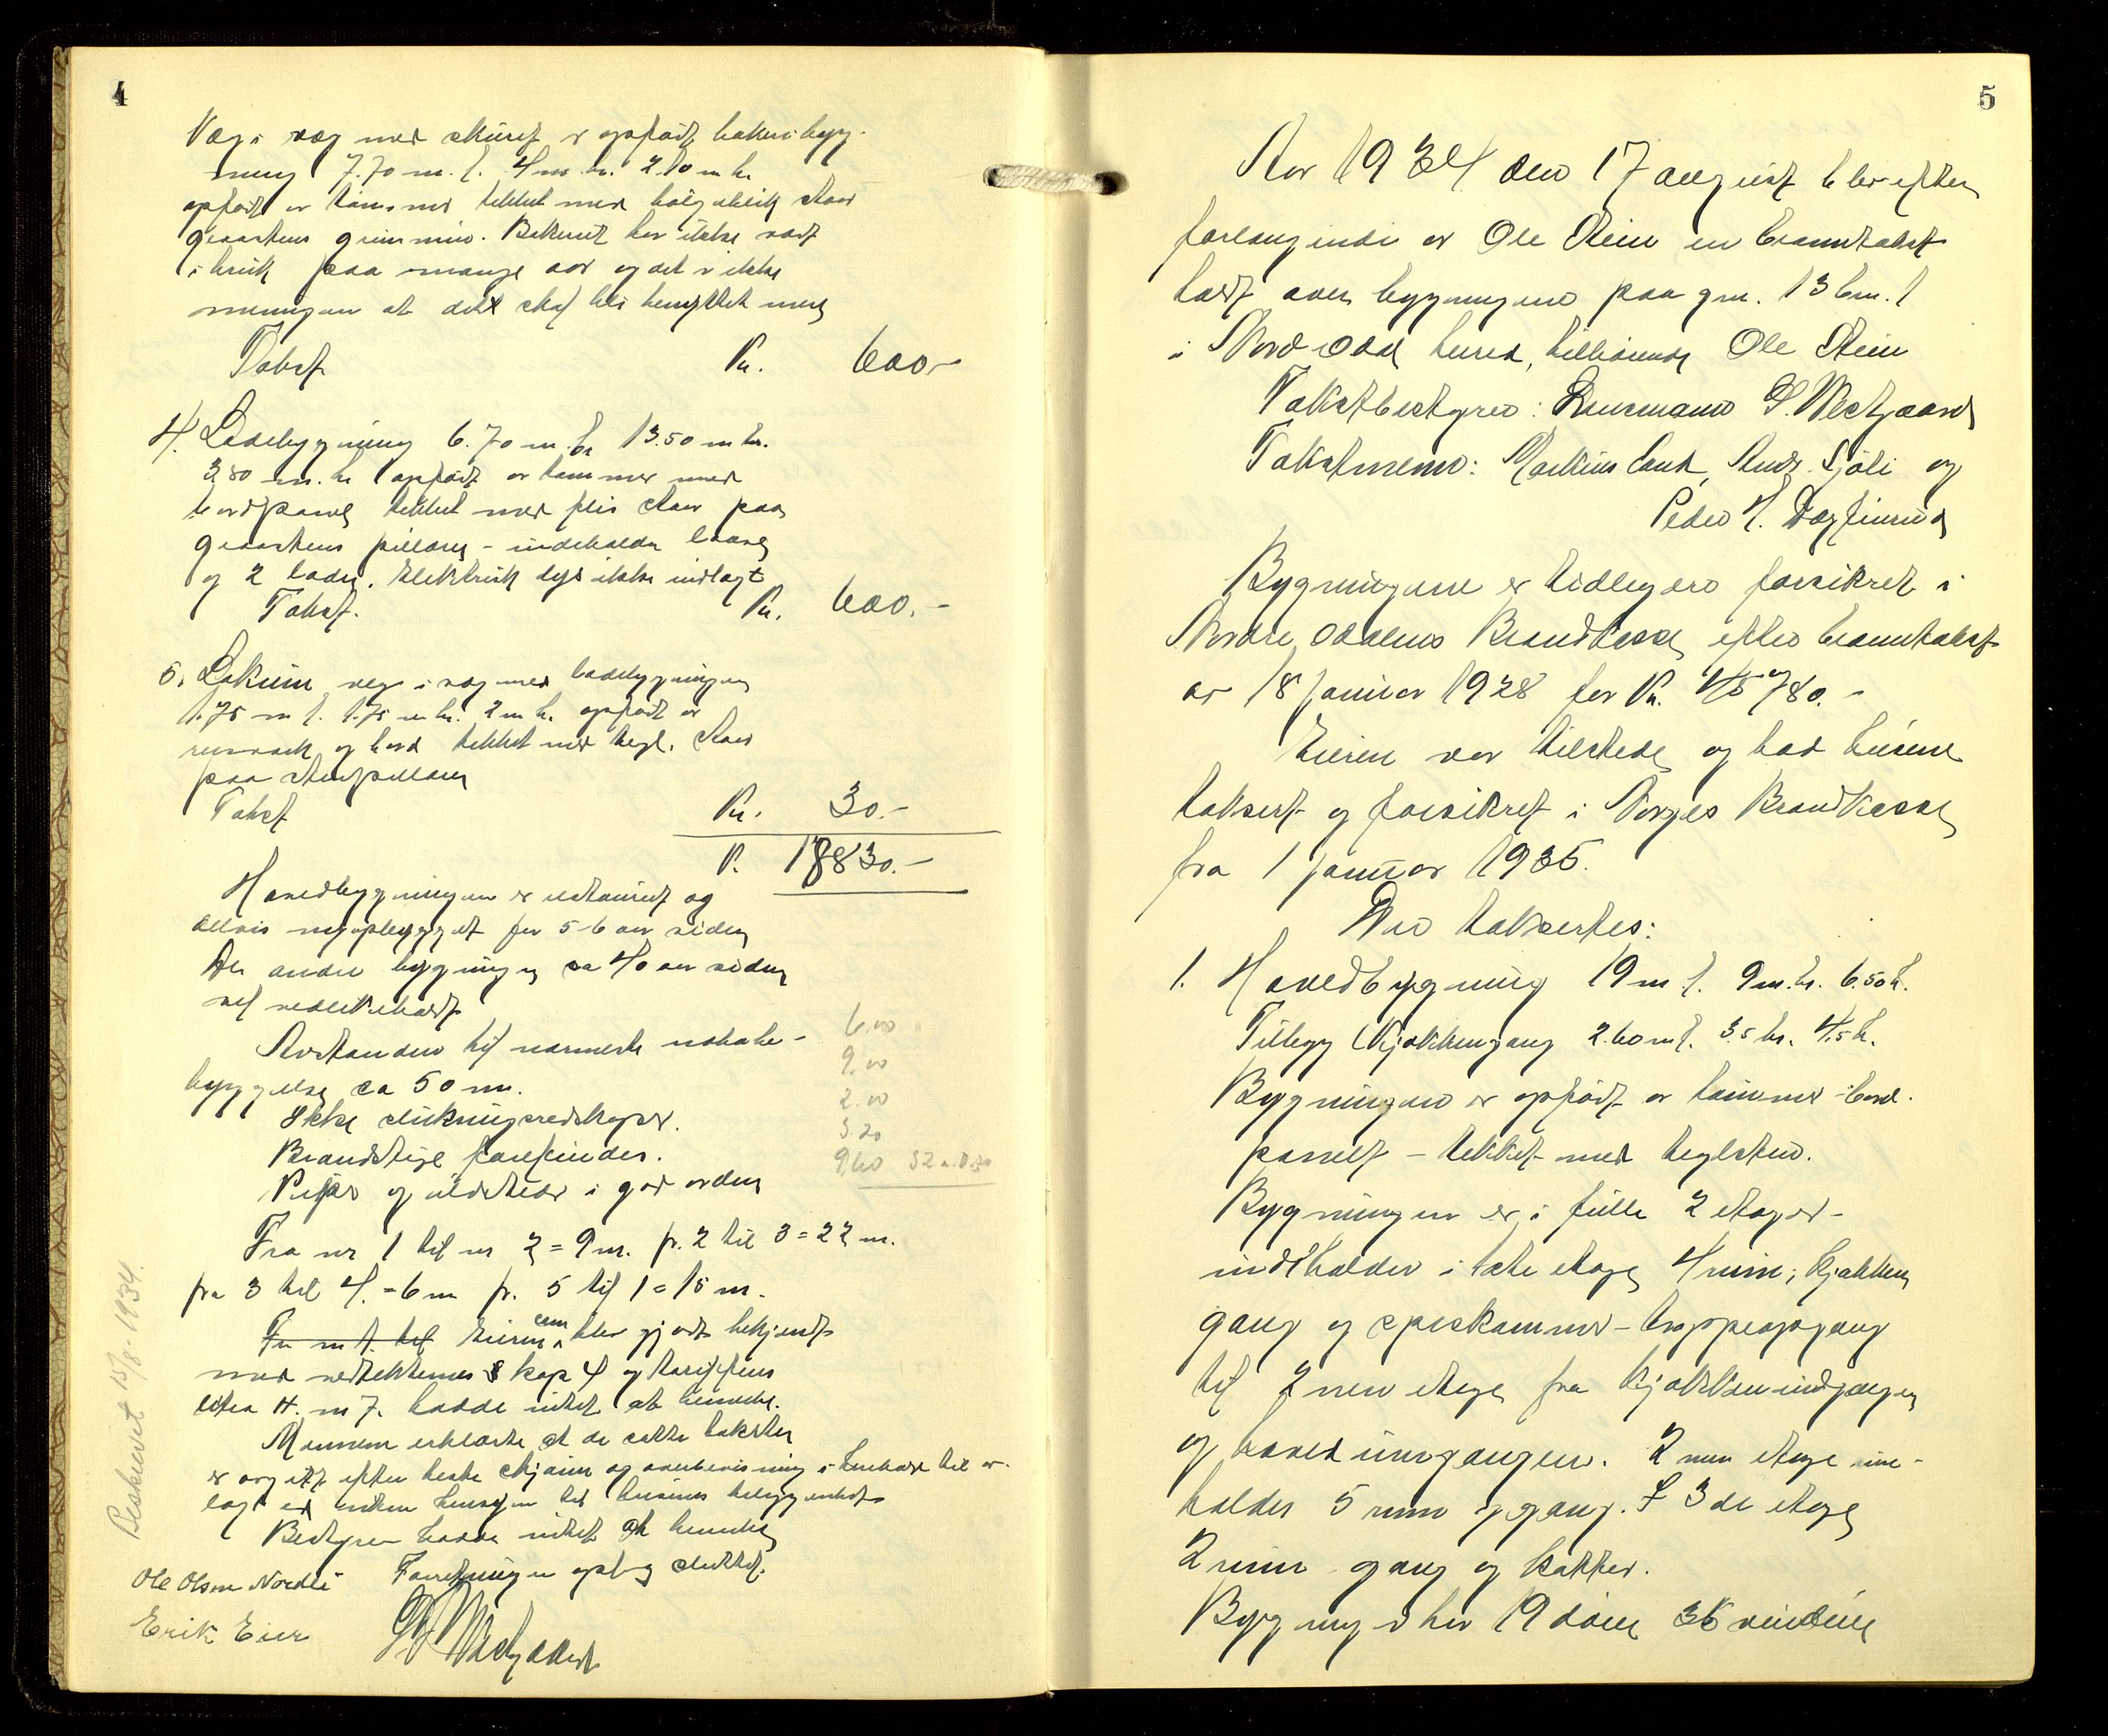 4
Væg i væg med skuret er opført bakeribyg-
ning 7.70 m. l. 4 m. br. 2.10 m h.
opført av tømmer tekket med bølgeblik staar
graastens grunmur. Bakeriet har ikke vært
i bruk paa mange aar og det er ikke
meningen at det skal bli benyttet mer
Takst Kr. 600.-
4. Ladebygning 6.70 m. br 13.50 m
3.80 m. h opført av tømmer med
bordpanel tekket med flis staar paa
graastens pillarer - indeholder laave
og 2 lader. Elektrisk lys ikke indlagt
Takst. Kr. 600.-
5. Lokum veg i væg med ladebygningen
1.75 m l. 1.75 m br. 2 m h. opført av
og bord tekket med tegl. Staar
paa stenpillarer
Takst Kr. 30.-
Kr. 18830.-
Hovedbygningen er restaurert og
delvis nyopbygget for 5-6 aar siden
De andre bygninger ca 40 aar siden
vel vedlikeholdt
Avstanden til nærmeste nabobe-
byggelse ca 50 m.
Ikke slukningsredskaper.
Brandstige forefindes.
Piper og ildsteder i god orden
6.00
9.00
2.00
3 20
9.60
Fra nr 1 til nr 2 = 9 m. fr. 2 til 3 = 22 m.
fra 3 til 4. = 6 m fr. 5 til 1 = 15 m.
Eieren som blev gjort bekjendt
med vedtektenes kap 4 og tariffens
litra H. nr 7. hadde intet at bemerke.
Mennene erklærte at de satte takster
er avgitt efter beste skjønn og overbevisning i henhold til av-
lagt ed uten hensyn til husenes beliggenhet
Bestyreren hadde intet at bemerke
Forretningen oplest og sluttet.
Ole Olsen Nordli
Erik Eier
Westgaard
Beskrevet 15/8-1934.
5
Aar 1934 den 17 august blev efter
forlangende av Ole Stein en branntakst
holdt over bygningene paa gnr. 13 bnr. 1
i Nord Odal herred, tilhørende Ole Stein
Takstbestyrer: Lensmann Westgaard
Takstmenn: Martius Sand, Andr. Sjøli og
Peder H. Dagfinrud
Bygningene er tidligere forsikret i
Nordre Odalens Brandkasse efter branntakst
av 18 januar 1928 for Kr. 45780.-
Eieren var tilstede og bad husene
taksert og forsikret i Norges Brandkasse
fra 1 januar 1935.
Der taksertes:
1. Hovedbygning 19 m l. 9 m. br. 6.50 h.
Tilbygg Kjøkkengang 2.60 m l. 3.5 br. 4.5 h.
Bygningen er opført av tømmer - bord-
panelt - tekket med teglsten.
Bygningen er i fulle 2 etager -
indeholder i 1ste etage 4 rum, kjøkken
gang og spiskammer - trappeopgang
til 2nen etage fra kjøkkeninngangen
og hovedinngangen. 2nen etage inne-
holder 5 rum og gang. I 3de etage
2 rum gang og kott.
Bygningen har 19 døre 36 vinduer